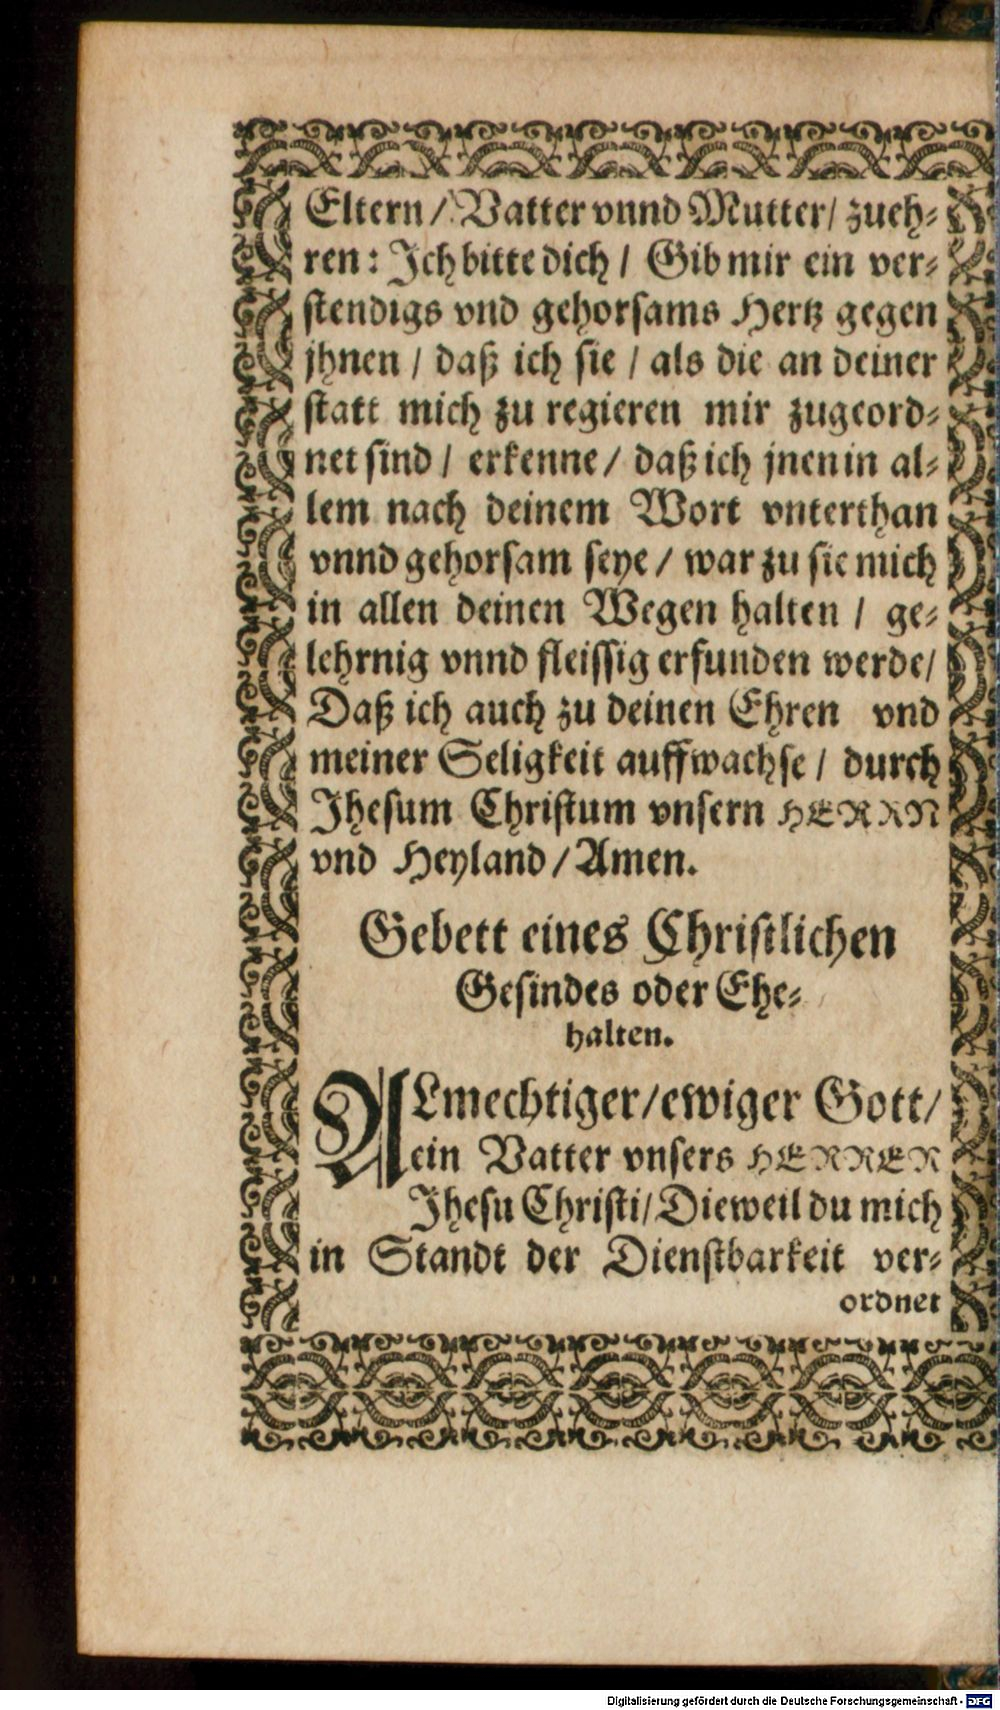 Eltern / Vatter vnnd Mutter / zueh⸗
ren: Ich bitte dich / Gib mir ein ver⸗
stendigs vnd gehorsams Hertz gegen
jhnen / daß ich sie / als die an deiner
statt mich zu regieren mir zugeord⸗
net sind / erkenne / daß ich jnen in al⸗
lem nach deinem Wort vnterthan
vnnd gehorsam seye / war zu sie mich
in allen deinen Wegen halten / ge⸗
lehrnig vnnd fleissig erfunden werde /
Daß ich auch zu deinen Ehren vnd
meiner Seligkeit auffwachse / durch
Jhesum Christum vnsern HERRN
vnd Heyland / Amen.
Gebett eines Christlichen
Gesindes oder Ehe⸗
halten.
ALmechtiger / ewiger Gott /
ein Vatter vnsers HERREN
Jhesu Christi / Dieweil du mich
in Standt der Dienstbarkeit ver⸗
ordnet
Digitalisierung gefördert durch die Deutsche Forschungsgemeinschaft - DFG